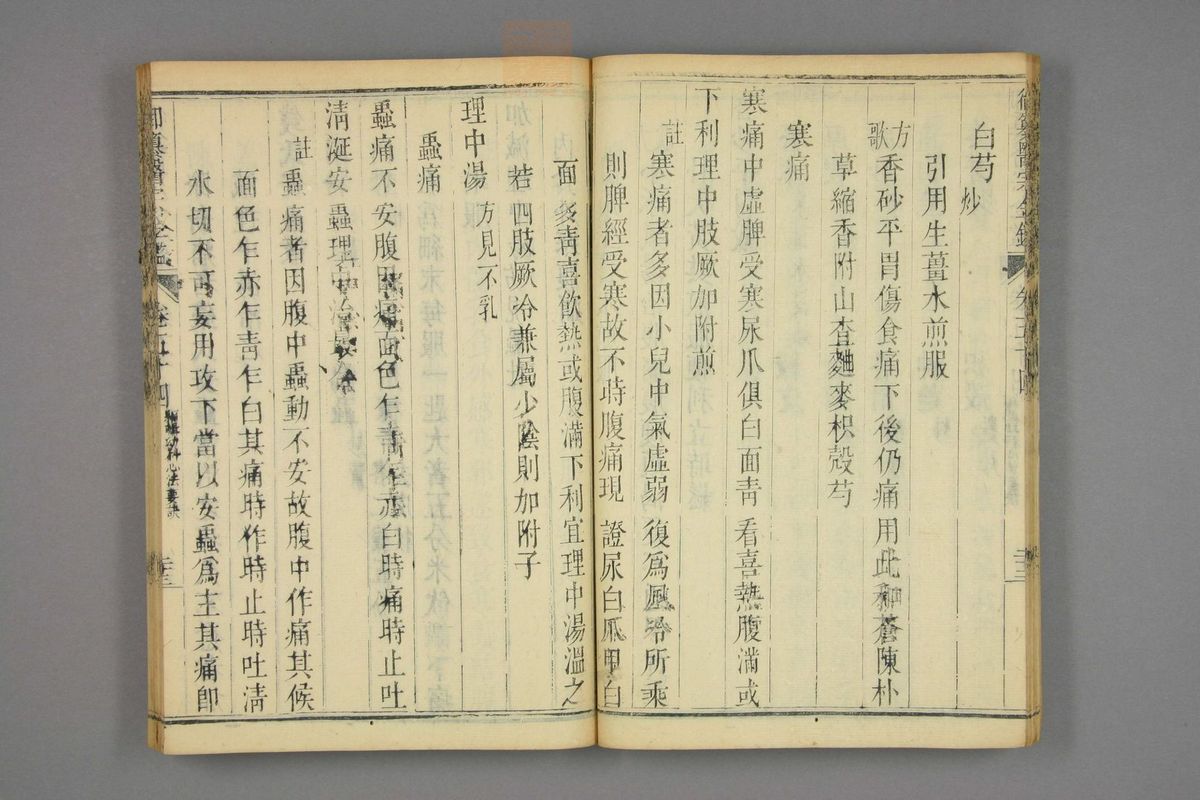 御纂醫宗金鑑 卷五十四 二十三
白芍 炒
引用生薑水煎服
方歌 香砂平胃傷食痛下後仍痛用此和蒼陳朴
草縮香附山査麯麥枳殻芍
寒痛
寒痛中虛脾受寒尿爪俱白面靑看喜熱腹滿或
下利理中肢厥加附煎
註 寒痛者多因小兒中氣虛弱復爲風冷所乘
則脾經受寒故不時腹痛現證尿白爪甲白
面多靑喜飲熱或腹滿下利宜理中湯溫之
若四肢厥冷兼屬少陰則加附子
理中湯 方見不乳
蟲痛
蟲痛不安腹因痛面色乍靑乍赤白時痛時止吐
淸涎安蟲理中治
註 蟲痛者因腹中蟲動不安故腹中作痛其候
面色乍赤乍靑乍白其痛時作時止時吐淸
水切不可妄用攻下當以安蟲爲主其痛卽
御纂醫宗金鑑 卷五十四 幼科心法要訣 二十三